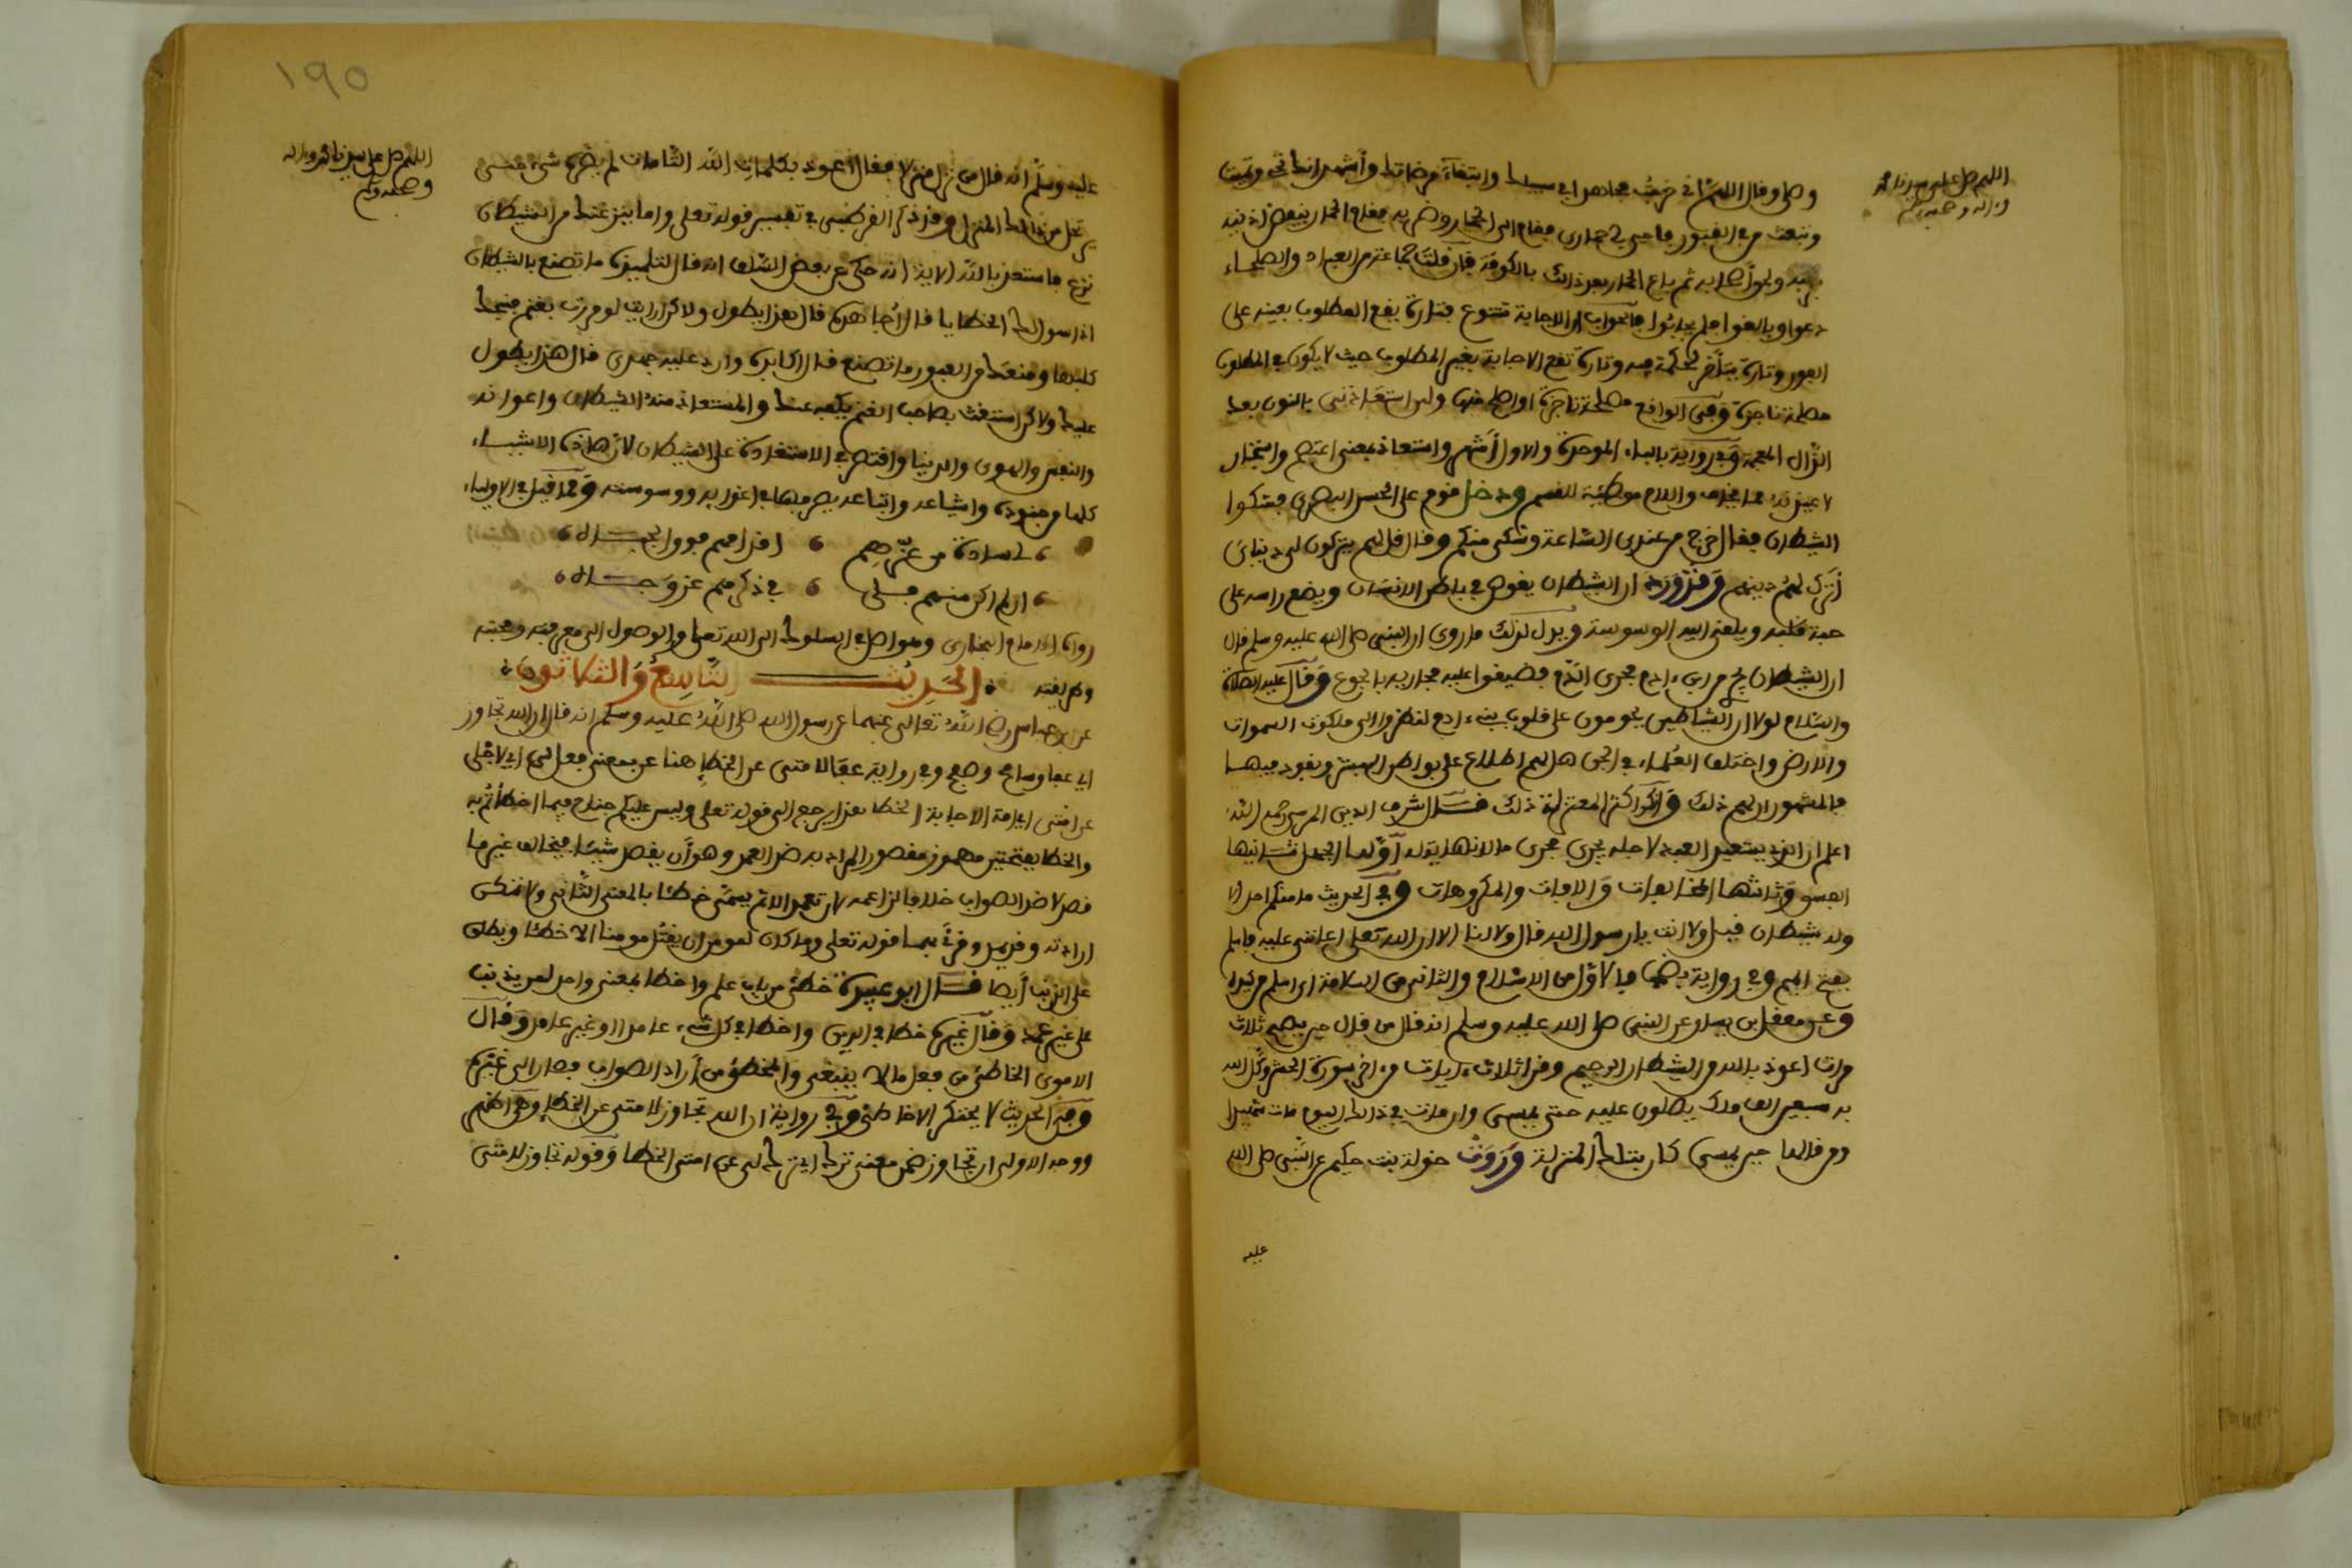 اللهم صل على سيدنا محمد
وءاله وصحبه وسلم
وصلى وقال اللهم اني خرجت مجاهدا في سبيلك وابتغاء مرضاتك وأشهد انك تحي وتميت
وتبعث من في القبور فاحيي لي حماري فقام الى الحمار وضربه فقام الحمار ينفض اذنيه
ثم باع الحمار بعد ذالك بالكوفة فان قلت جماعة من العباد والصلحاء
دعوا وبالغوا فلم يجابوا فالجواب ان الاجابة تتنوع فتارة يقع المطلوب بعينه على
الفور وتارة يتأخر لحكمة فيه وتارة تقع الاجابة بغير المطلوب حيث لا يكون في المطلوب
مصلحة ناجزة وفي الواقع مصلحة ناجزة او اصلح منها ولئن استعاذني بالنون بعد
الذال المعجمة وفي رواية بالباء الموحدة والاول أشهر واستعاذ بمعنى اعتصم واستجار
لاعيذنه مما يخاف واللام موطئة للقسم ودخل قوم على الحسن البصري فشكوا
الشيطان فقال خرج من عندي الساعة وشكى منكم وقال قل لهم يتركون لي دنياي
أترك لهم دينهم وقد ورد ان الشيطان يغوص في باطن الانسان ويضع راسه على
حبة قلبه ويلقي اليه الوسوسة ويدل لذلك ما روي ان النبي صلى الله عليه وسلم قال
ان الشيطان يجري من ابن ءادم مجرى الدم فضيقوا عليه مجاريه بالجوع وقال عليه الصلاة
والسلام لولا ان الشياطين يحومون على قلوب بني ءادم لنظروا الى ملكوت السموات
والارض واختلف العلماء في الجن هل لهم اطلاع على بواطن البشر ونفوذ فيها
فالمشهور ان لهم ذلك وانكر اكثر المعتزلة ذلك قال شرف الدين المرسي رحمه الله
اعلم ان الذي يستعيذ العبد لاجله يجري مجرى ما لا نهاية له أولها الجهل ثانيها
الفسق وثالثها المخالفات والافات والمكروهات وفي الحديث ما منكم احد الا
وله شيطان قيل ولا انت يا رسول الله قال ولا انا الا ان الله تعلى اعانني عليه فاسلم
بفتح الميم وفي رواية بضمها فالاول من الاسلام والثاني من السلامة اي اسلم من كيده
وعن معقل بن يسار عن النبي صلى الله عليه وسلم انه قال من قال حين يصبح ثلاث
مرات اعوذ بالله من الشيطان الرجيم وقرا ثلاث ءايات من ءاخر سورة الحشر وكل الله
به سبعين الف ملك يصلون عليه حتى يمسي وان مات في ذالك اليوم مات شهيدا
ومن قالها حين يمسي كان بتلك المنزلة وروت خولة بنت حكيم عن النبي صلى الله
عليه
١٩٥
اللهم صل على سيدنا محمد وءاله
وصحبه وسلم
عليه وسلم انه قال من نزل منزلا فقال اعوذ بكلمات الله التامات لم يضره شيء حتى
يرتحل من ذالك المنزل وقد ذكر القرطبي في تفسير قوله تعلى واما ينزغنك من الشيطان
نزغ فاستعذ بالله الاية انه حكي عن بعض السلف انه قال لتلميذه ما تصنع بالشيطان
اذا سول لك الخطايا قال أجاهده قال هذا يطول ولاكن ارايت لو مررت بغنم فنبحك
كلبها ومنعك من العبور ما تصنع قال اكابده وارده جهدي قال هذا يطول
عليك ولاكن استغث بصاحب الغنم يكفه عنك والمستعاذ منه الشيطان واعوانه
والنفس والهوى والدنيا وافتصر في الاستعاذة على الشيطان لان هاذه الاشياء
كلها من جنوده واشياعه واتباعه يصرفها في اغوائه ووسوسته ومما قيل في الاولياء
لي سادة من عزهم ، اقدامهم فوق الجباه
ان لم اكن منهم فلي ، في ذكرهم عز وجاه
رواه الامام البخاري وهو اصل في السلوك الى الله تعلى والوصول الى معرفته ومحبته
وطريقته الحديث التاسع والثلاثون
عن ابن عباس رضي الله تعالى عنهما عن رسول الله صلى الله عليه وسلم انه قال ان الله تجاوز
اي عفا وسامح وصفح وفي رواية عفا لامتي عن الخطإ هنا عن بمعنى فعل لي اي لاجلي
عن امتي اي امة الاجابة الخطا هذا يرجع الى قوله تعلى وليس عليكم جناح فيما اخطأتم به
والخطا بفتحتين مهموز مقصور المراد به ضد العمد وهو أن يقصد شيئا فيخالف غير ما
قصد لا ضد الصواب خلافا لزاعمه لان تعمد الاثم يسمى خطئا بالمعنى الثاني ولا تمكن
ارادته وقد يمد وقرئ بهما قوله تعلى وما كان لمومن ان يقتل مومنا الا خطئا ويطلق
على الذنب أيضا قال ابو عبيدة خطئ من باب علم واخطا بمعنى واحد لمن يذنب
على غير عمد وقال غيره خطا في الدين واخطا في كل شيء عامدا او غير عامد وقال
الاموي الخاطئ من فعل ما لا ينبغي والمخطئ من أراد الصواب فصار الى غيره
وفي الحديث لا يحتكر الا خاطئ وفي رواية ان الله تجاوز لامتي عن الخطإ وهي اظهر
ووجه الاولى ان تجاوز ضمن معنى ترك اي ترك لي عن امتي الخطا وقوله تجاوز لامتي